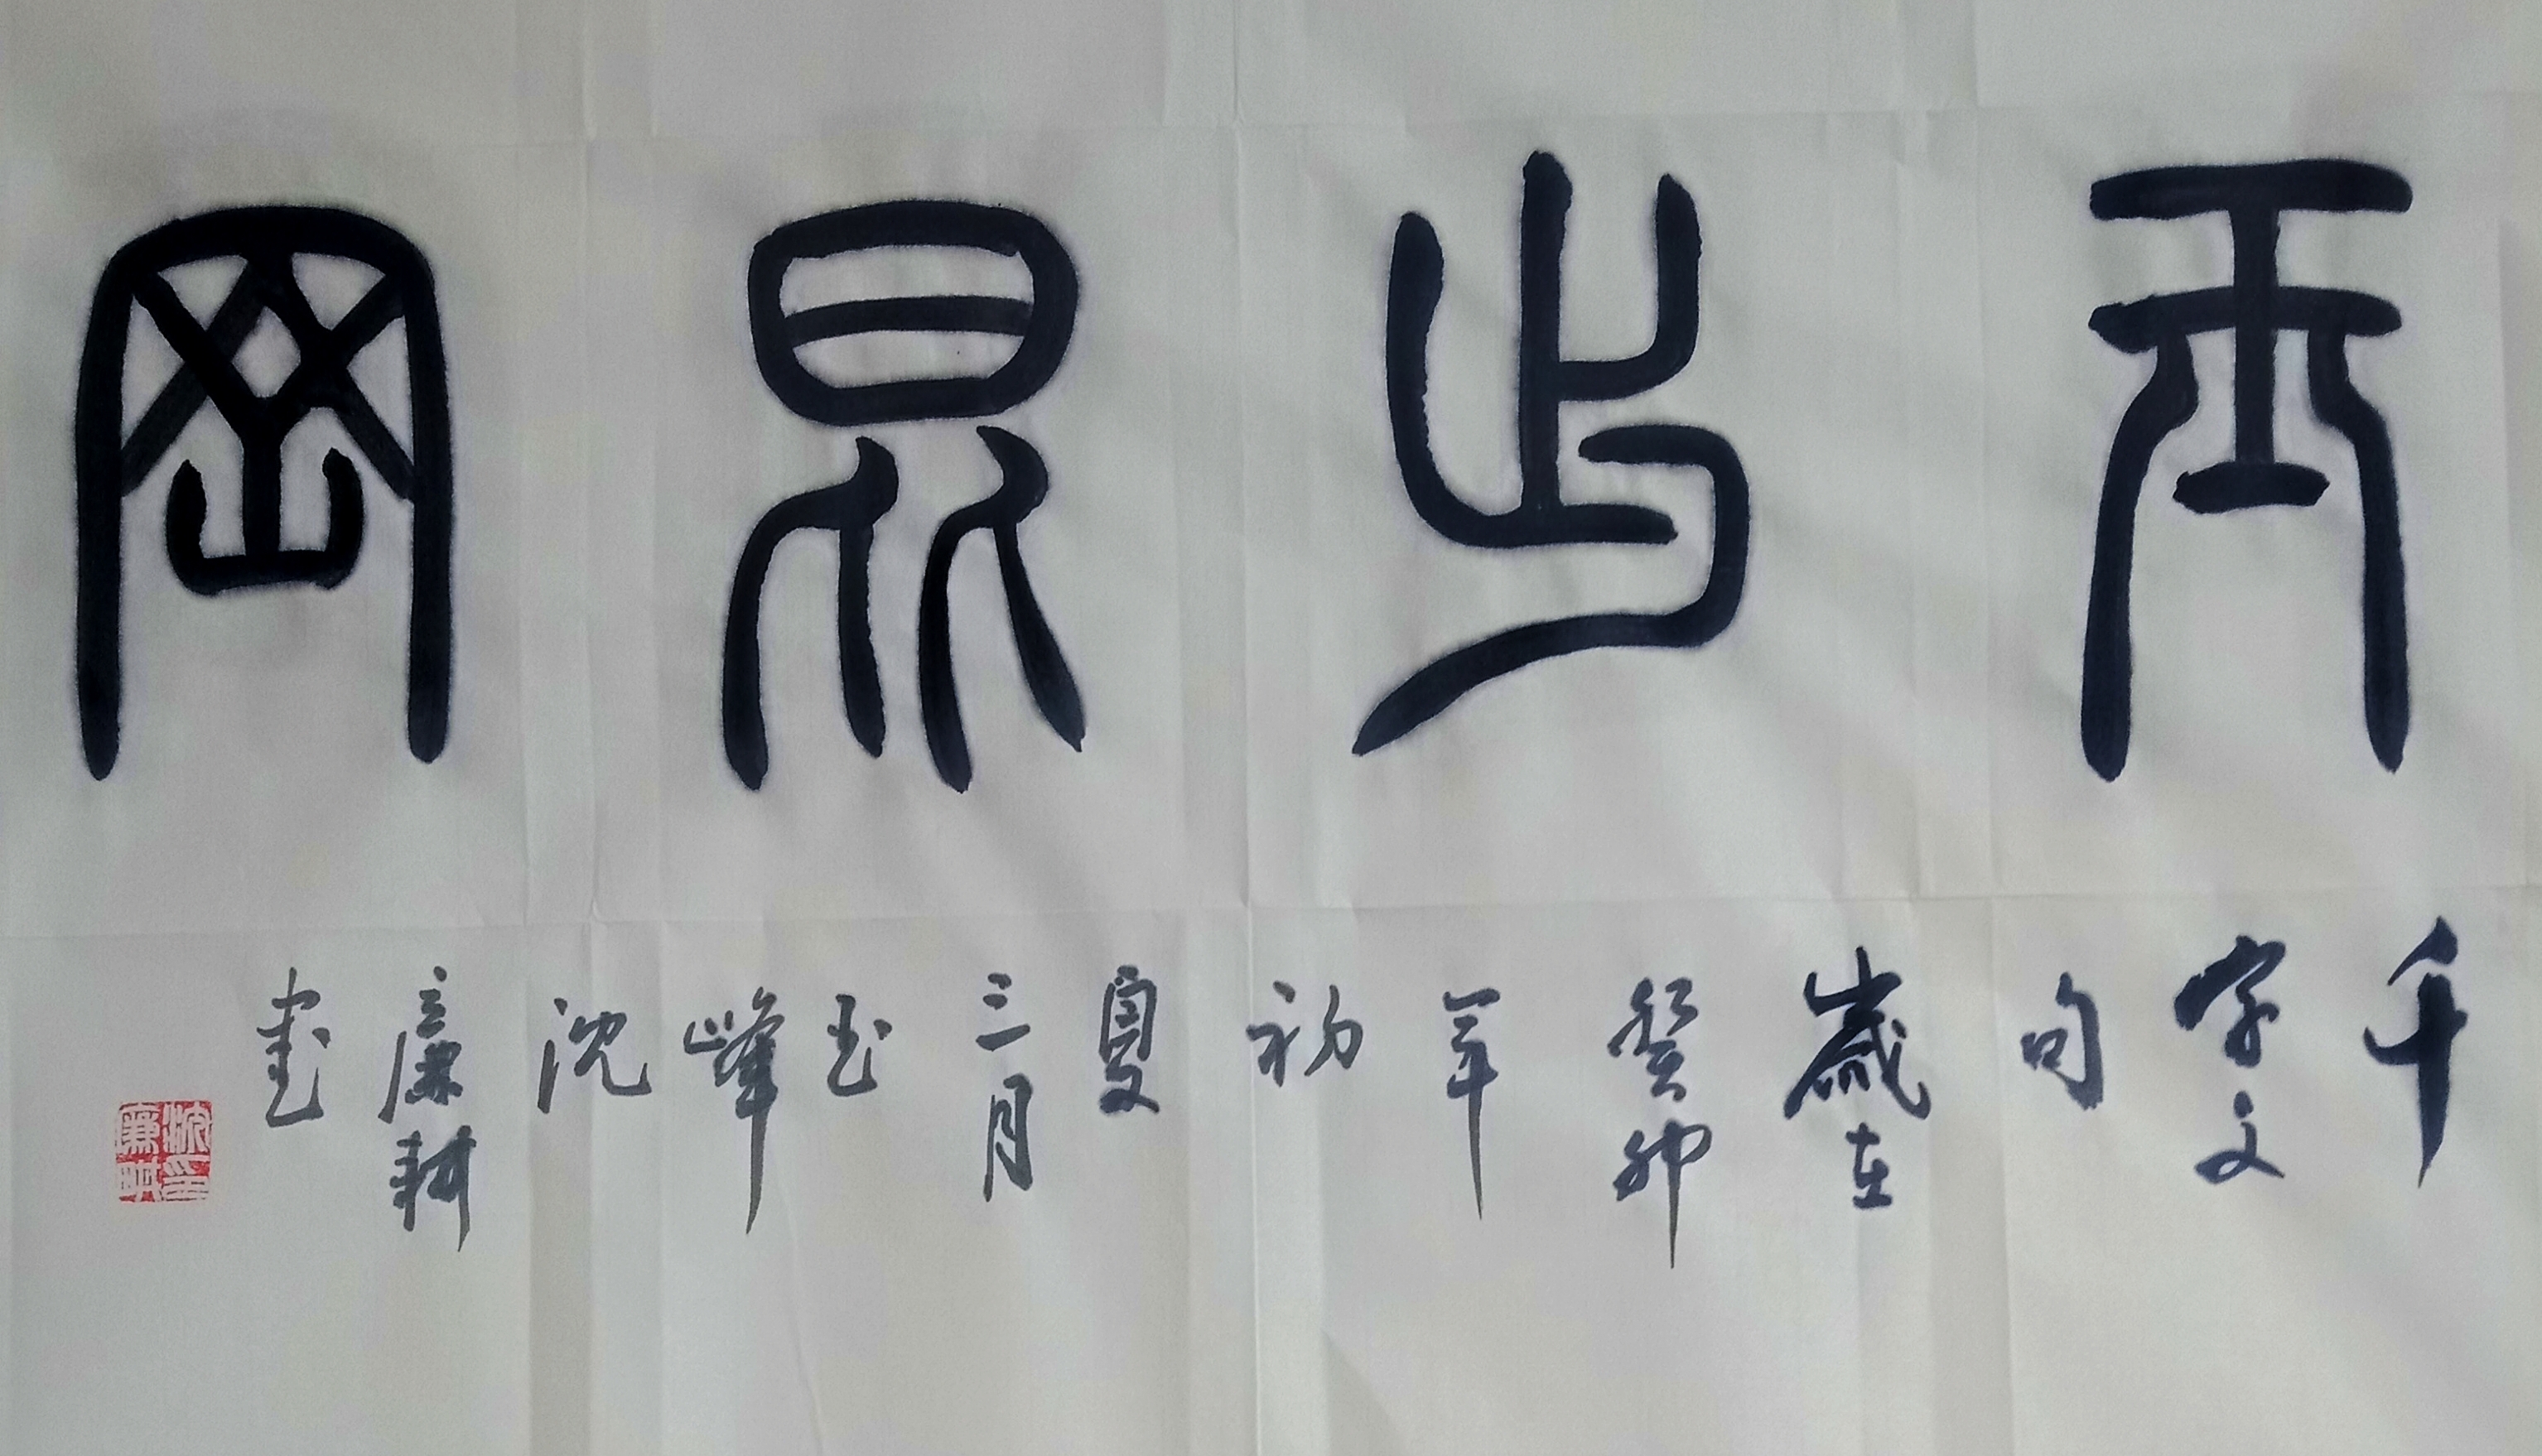 玉出昆岡
千字文句歲在癸卯年初夏三月玉峰沈廉耕書
沈廉耕印